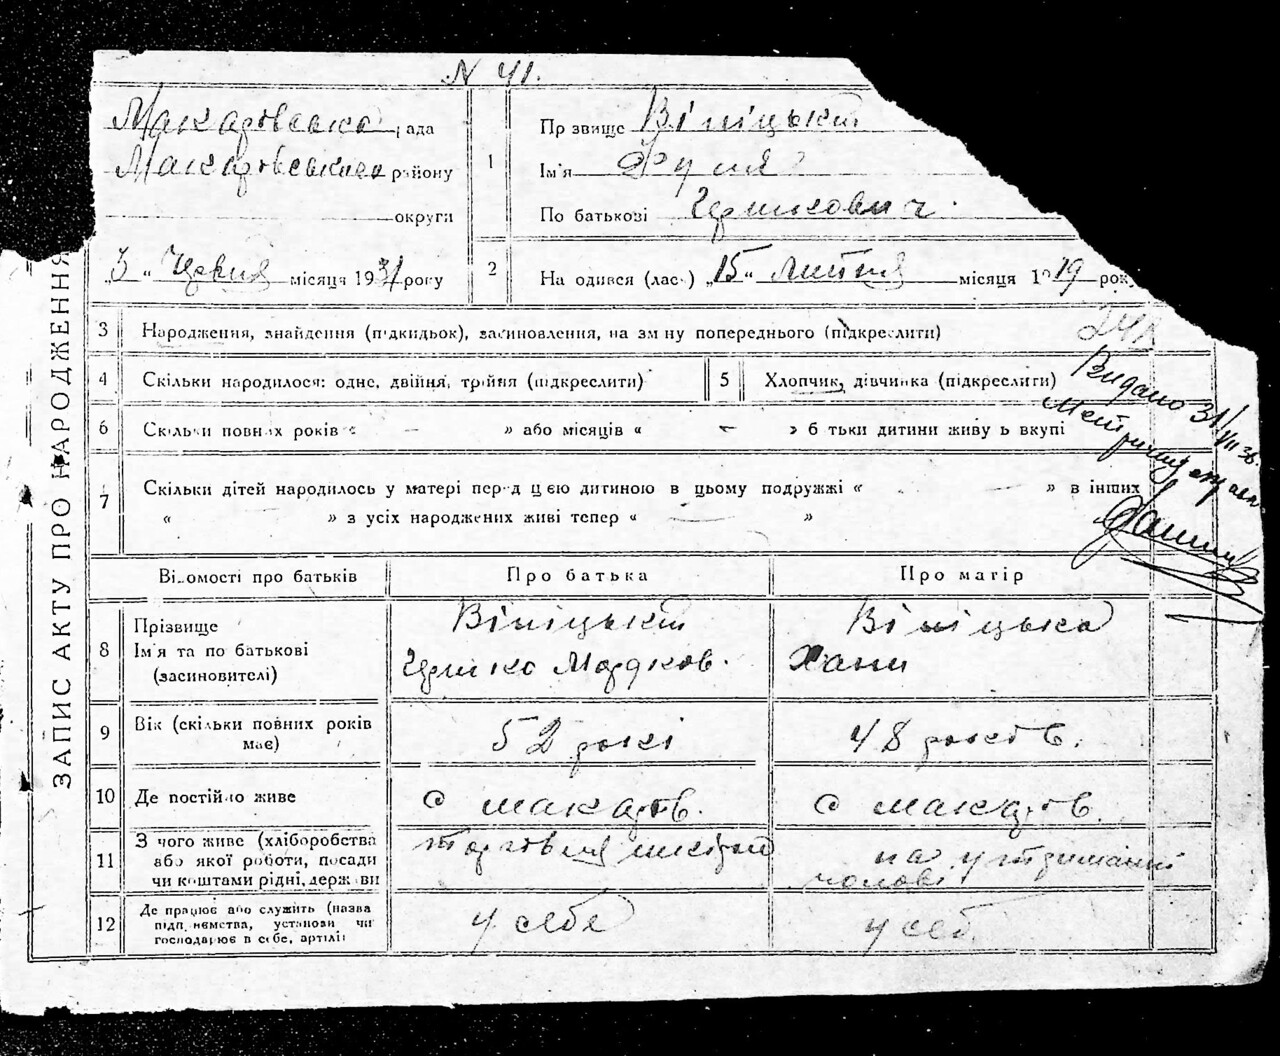 N 41.
Макарівська рада
Макарівського району
округи
„3" Червня місяця 1931 року
ЗАПИС АКТУ ПРО НАРОДЖЕННЯ
1 Пр звище Вініцький
Ім'я
По батькові Ицькович.
2 На одився (лас ) „15" лютня місяця 1919 рок
3 Народження, знайдення (підкидьок), засиновлення, на зм ну попереднього (підкреслити)
4 Скільки народилося: одне, двійня, трійня (підкреслити)
5 Хлопчик, дівчинка (підкреслити)
Видано 31/VII 36.
6 Скільки повних років « – » або місяців « – » б тьки дитини живу ь вкупі
7 Скільки дітей народилось у матері перед цією дитиною в цьому подружжі « » в інших
« » з усіх народжених живі тепер « — »
Відомості про батьків Про батька Про матір
8 Прізвище
Ім'я та по батькові
(засиновителі)
Вініцький
Мордков.
Вініцька
Хани
9 Вік (скільки повних років
має)
52 рокі
48 років.
10 Де постійно живе
с макарів.
с макарів.
11 З чого живе (хліборобства
або якої роботи, посади
чи коштами рідні, держ ви
торговля
на утриманні
чолові
12 Де працює або служить (назва
підп немства, установи чи
господарює в себе, артілі)
у себе
у себ.